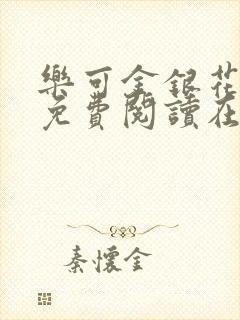 樂可金銀花
免費閱讀在
秦懷金